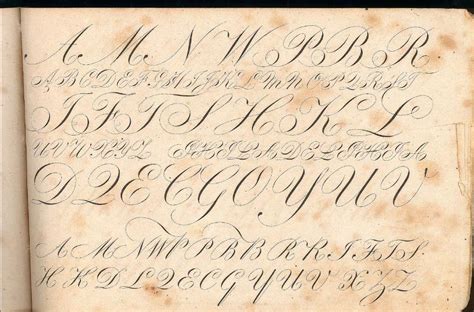 A M N W P B R.
A B C D E F G H I J K L M N O P Q R S T
I F T S H K L
U V W X Y Z. PHILADELPHIA
D Q E C G O Y U V
A M N W P B R K I F T S.
H K D L Q E C G Y U V X Y Z